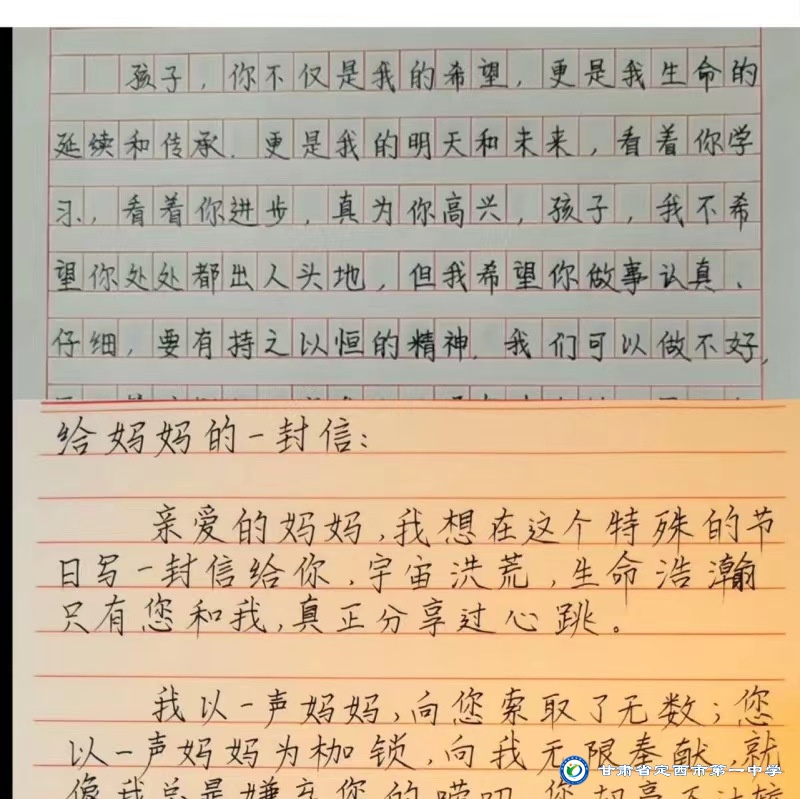 孩子，你不仅是我的希望，更是我生命的
延续和传承．更是我的明天和未来，看着你学
习、看着你进步，真为你高兴，孩子，我不希
望你处处都出人头地，但我希望你做事认真、
仔细，要有持之以恒的精神．我们可以做不好，
给妈妈的一封信：
亲爱的妈妈，我想在这个特殊的节
日写一封信给你，宇宙洪荒，生命浩瀚
只有您和我，真正分享过心跳。
我以一声妈妈，向您索取了无数；您
以一声妈妈为枷锁，向我无限奉献，就
像我总是嫌弃您的唠叨，您却毫不计较
甘肃省定西市第一中学